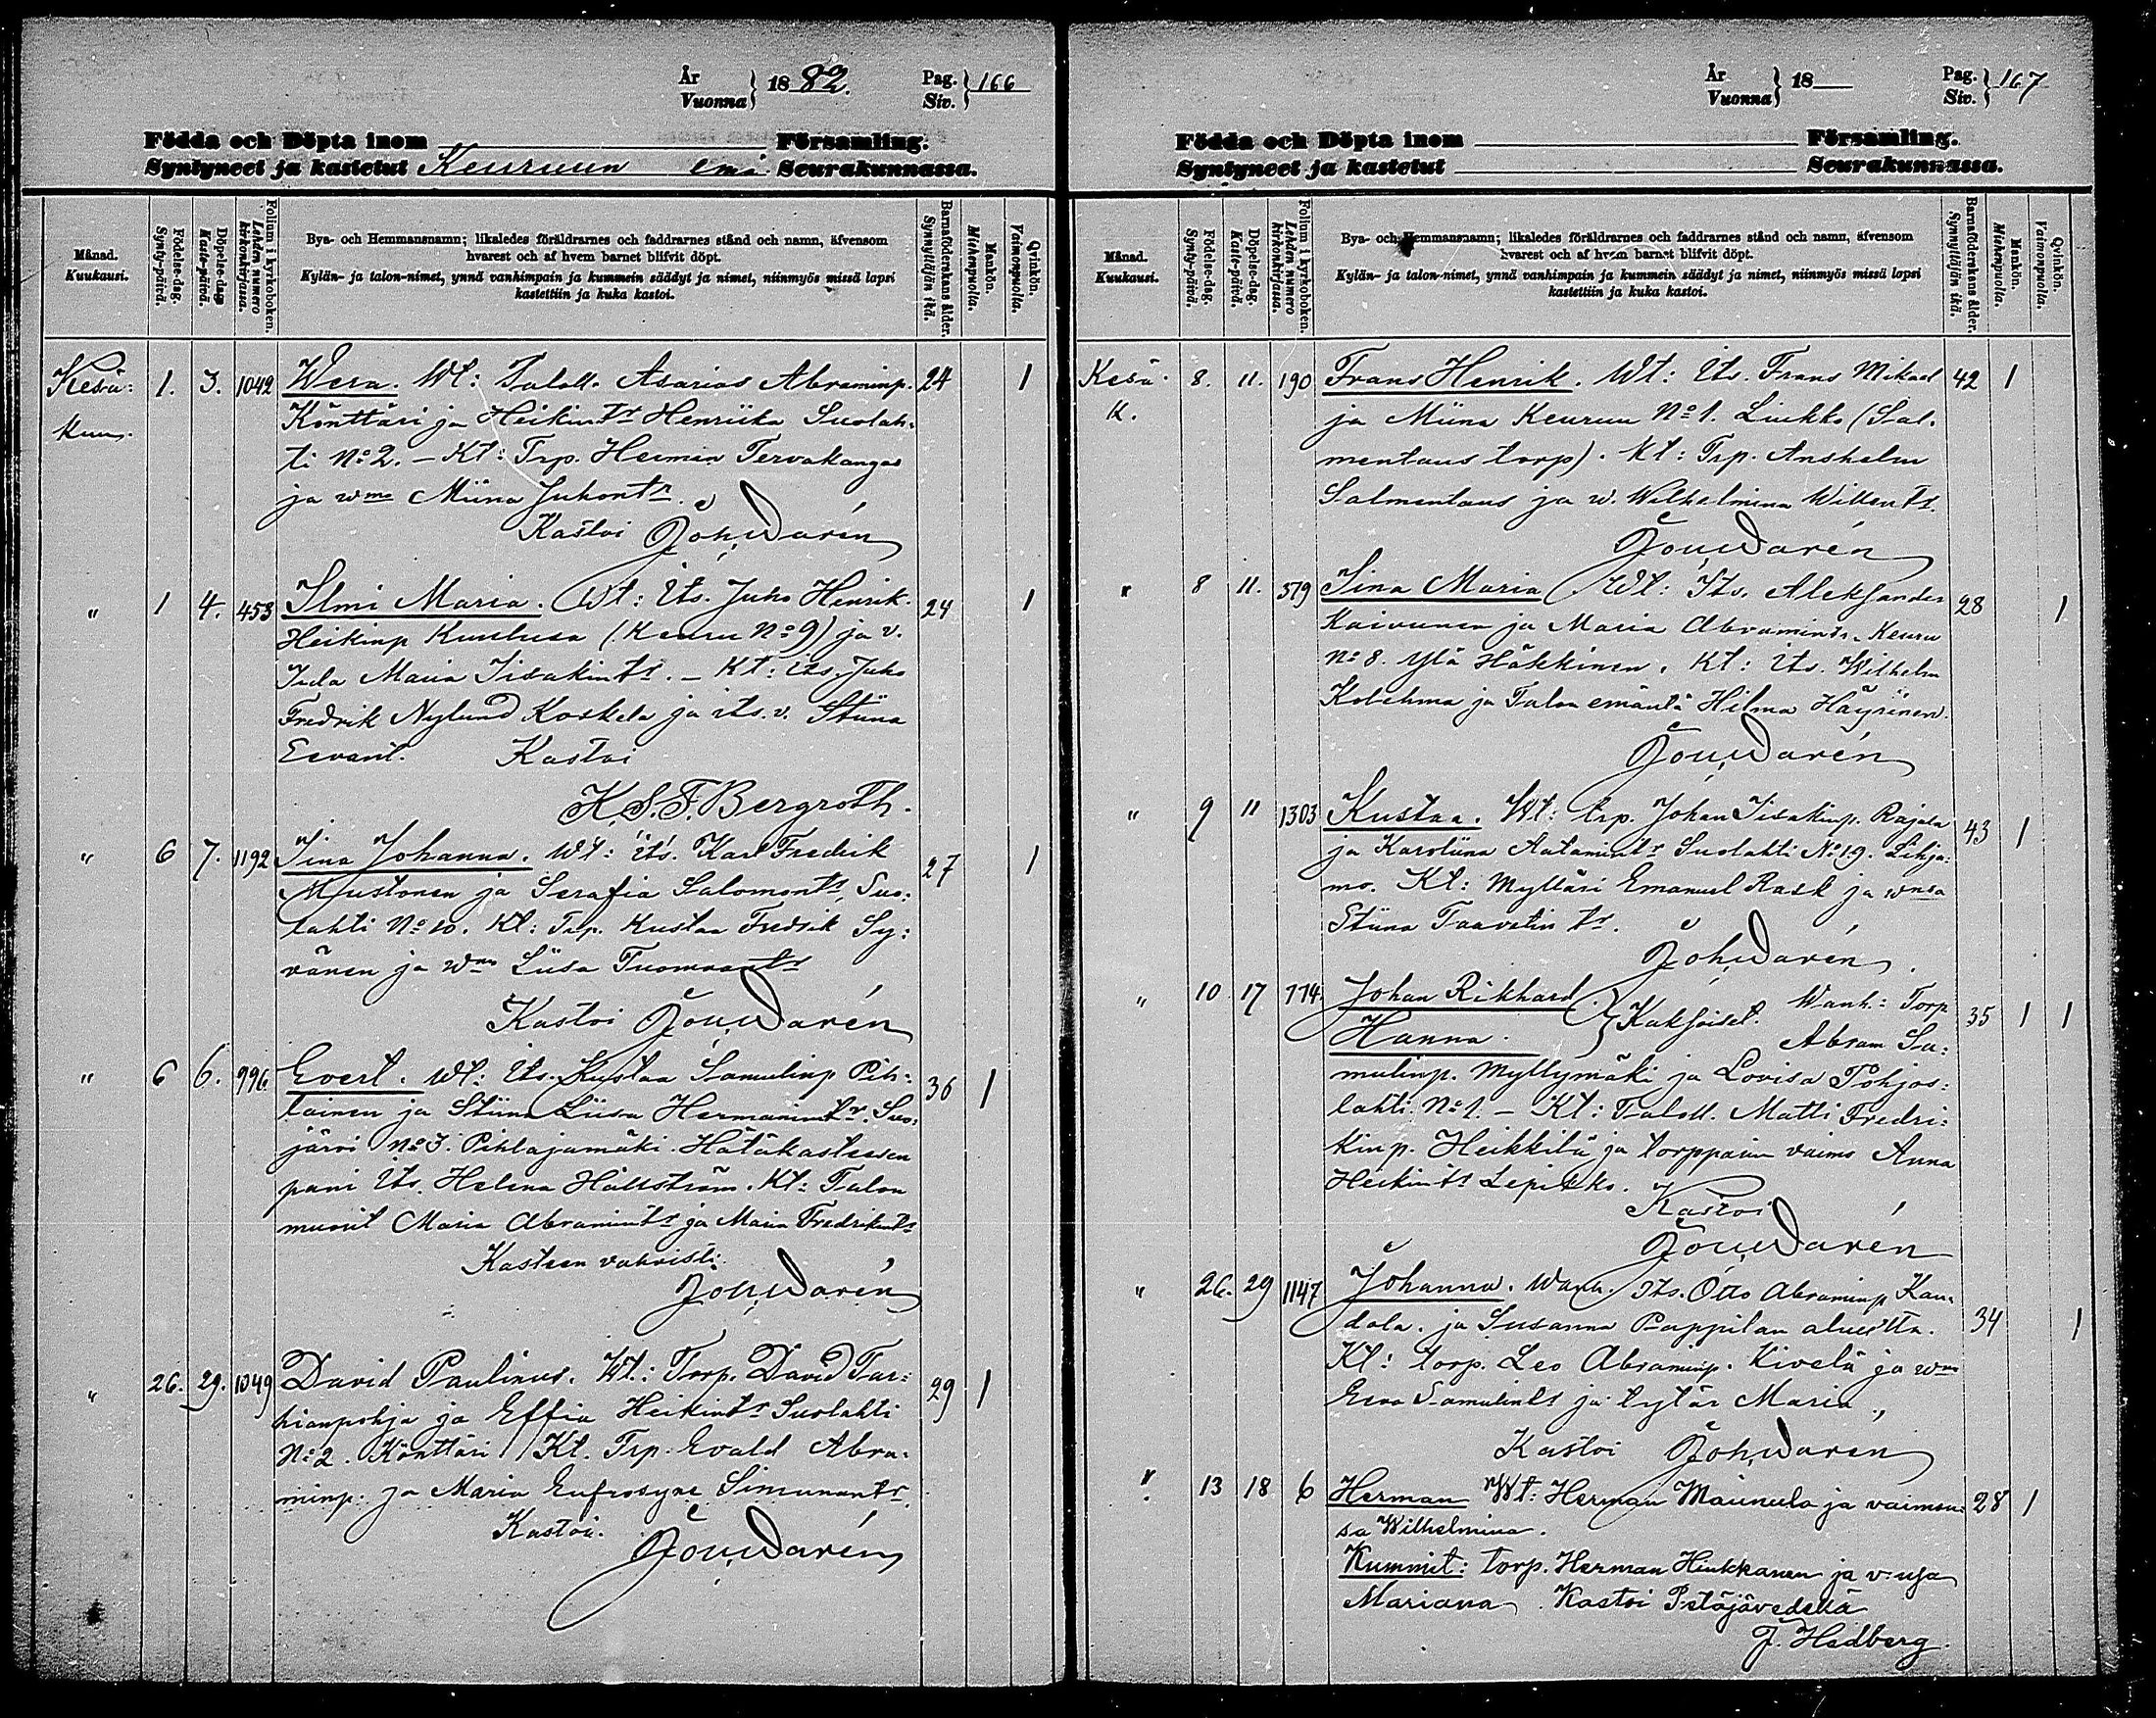 År
Vuonna } 1882. Pag.
Siv. } 166
Födda och Döpta inom Församling.
Syntyneet ja kastetut Keuruun emä Seurakunnassa.
Månad.
Kuukausi.
Födelse-dag.
Synty-päivä.
Döpelse-dag
Kaste-päivä.
Folium i kyrkoboken.
Lehden numero
kirkonkirjassa.
Bya- och Hemmansnamn; likaledes föräldrarnes och faddrarnes stånd och namn, äfvensom
hvarest och af hvem barnet blifvit döpt.
Kylän- ja talon-nimet, ynnä vanhimpain ja kummein säädyt ja nimet, niinmyös missä lapsi
kastettiin ja kuka kastoi.
Barnaföderskans ålder.
Synnyttäjän ikä.
Mankön.
Miehenpuolia.
Qvinkön.
Vaimonpuolia.
Kesä: 1. 3. 1042 Wera. Wt: Taloll. Asarias Abraminp. 24 1
kuu. Könttäri ja Heikint:r Henriika Suolah-
ti No 2. – Kt: Trp. Herman Tervakangas
ja wmo Miina Juhont:r.
Kastoi Joh. Warén
" 1 4. 453 Ilmi Maria. Wt: Its. Juho Henrik. 24 1
Heikinp (Keuru No 9) ja v.
Ida Maria Iisakint:r. – Kt: its. Juho
Fredrik Nylund Koskela ja its. v. Stiina
Eevant. Kastoi
K. S. F. Bergroth.
" 6 7. 1192 Iina Johanna. Wt: its. Karl Fredrik 27 1
Mustonen ja Serafia Salomont:r, Suo-
lahti No 10. Kt: Trp. Kustaa Fredrik Sy:
vänen ja wmo Liisa Tuomaant:r
Kastoi Joh. Warén
" 6 6. 996 Evert. Wt: Its. Kustaa Samulinp Pih- 36 1
lainen ja Stiina Liisa Hermanint:r. Suo-
järvi No 3. Pihlajamäki. Hätäkasteesen
pani Its. Helena Hällström. Kt: Talon
muorit Maria Abramint:r ja Maria Fredrikint:r
Kasteen vahvisti.
Joh. Warén
" 26. 29. 1049 David Paulinus. Wt: Torp. David Tar- 29 1
hianpohja ja Effia Heikint:r Suolahti
No 2. Könttäri Kt. Trp. Evald Abra-
minp. ja Maria Eufrosyne Simunant:r.
Kastoi.
Joh. Warén
År
Vuonna } 18 Pag.
Siv. } 167
Födda och Döpta inom Församling.
Syntyneet ja kastetut Seurakunnassa.
Månad.
Kuukausi.
Födelse-dag.
Synty-päivä.
Döpelse-dag.
Kaste-päivä.
Folium i kyrkoboken.
Lehden numero
kirkonkirjassa.
Bya- och Hemmansnamn; likaledes föräldrarnes och faddrarnes stånd och namn, äfvensom
hvarest och af hvem barnet blifvit döpt.
Kylän- ja talon-nimet, ynnä vanhimpain ja kummein säädyt ja nimet, niinmyös missä lapsi
kastettiin ja kuka kastoi.
Barnaföderskans ålder.
Synnyttäjän ikä.
Mankön.
Miehenpuolia.
Qvinkön.
Vaimonpuolia.
Kesä. 8. 11. 190 Frans Henrik. Wt: Its. Frans Mikael 42 1
k. ja Miina Keuruu No 1. Liukko (Sal-
mentaus torp). Kt: Trp. Anshelm
Salmentaus ja w. Wilhelmina Willent:r.
Joh. Warén
" 8 11. 379 Iina Maria Wt: Its. Aleksander 28 1
Kaivunen ja Maria Abramint:r. Keuru
No 8. Ylä Häkkinen. Kt: its. Wilhelm
Kolehma ja Talon emäntä Hilma Häyrinen.
Joh. Warén
" 9 11 1303 Kustaa. Wt: trp. Johan Iisakinp. Rajala 43 1
ja Karoliina Aatamint:r Suolahti No 19. Lihja-
mo. Kt: Mylläri Emanuel Rask ja wmsa
Stiina Taavetin t:r.
Joh. Warén.
" 10 17 774 Johan Rikhard } Kaksoiset. Wanh: Torp 35 1 1
Hanna. Abram Sa-
mulinp. Myllymäki ja Lovisa Pohjos-
lahti No 1. – Kt: Taloll. Matti Fredri-
kinp. Heikkilä ja torpparin vaimo Anna
Heikint:r Lepikko.
Kastoi
Joh. Warén
" 26. 29 1147 Johanna. Wanh. Its. Otto Abraminp Kan- 34 1
dola. ja Susanna Pappilan aluetta.
Kt: torp. Leo Abraminp. Kivelä ja wmo
Eeva Samulint:r ja tytär Maria.
Kastoi Joh. Warén
" 13 18 6 Herman Wt: Herman Maunula ja vaimon- 28 1
sa Wilhelmina.
Kummit: torp. Herman Hiukkanen ja v:nsa
Mariana. Kastoi Petäjävedellä
J. Hedberg.